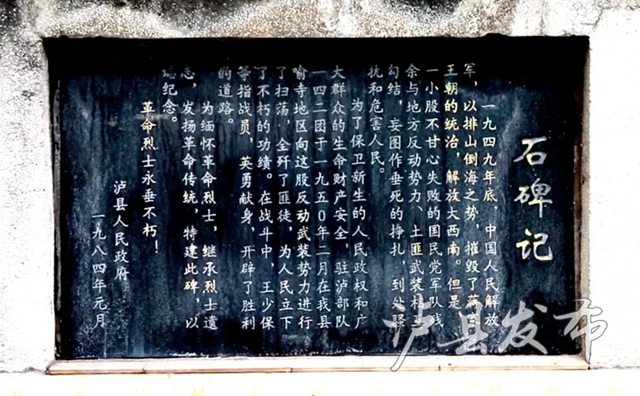 石碑记
一九四九年底,中国人民解放
军,以排山倒海之势,摧毁了蒋家
王朝的统治,解放大西南。但是,
一小股不甘心失败的国民党军队残
余与地方反动势力、土匪武装相
勾结,妄图作垂死的挣扎,到处骚
扰和危害人民。
为了保卫新生的人民政权和广
大群众的生命财产安全,驻泸部队
一四二团于一九五〇年二月在我县
喻寺地区向这股反动武装势力进行
了扫荡,全歼了匪徒,为人民立下
了不朽的功绩。在战斗中,王少保
等指战员,英勇献身,开辟了胜利
的道路。
为缅怀革命烈士,继承烈士遗
志,发扬革命传统,特建此碑,以
誌纪念。
革命烈士永垂不朽!
泸县人民政府
一九八四年元月
泸县发布